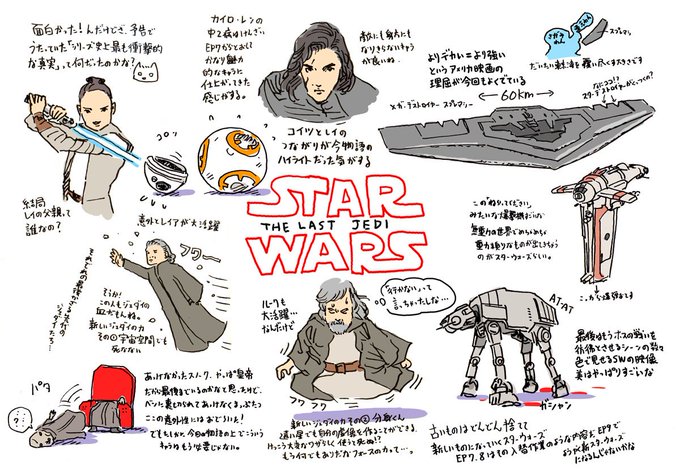 面白かった!んだけどさ、予告で
うたっていた「シリーズ史上最も衝撃的
な真実」って何だったのかな?
カイロ・レンの
中2病はげんざい
EP7からとおして
かなり魅力
的なキャラに
仕上がってきた
感じがする。
敵にも身方にも
なりきらないキャラ
が良いね。
コイツとレイの
つながりが今物語の
ハイライトだった気がする
コロッ
結局
レイの父親って
誰なの?
よりデカい=より強い
というアメリカ映画の
理屈が今回もよくでている
メガ・デストロイヤー スプレマシー
←60km→
スプレマシー
だいたい
なにココ!?
スターデストロイヤーがくっつくの?
この
みたいな爆撃機
無重力の世界で
重力頼りなものが出してきちゃう
のがスターウォーズらしい。
ここから爆弾をだす
STAR
THE LAST JEDI
WARS
意外とレイアが大活躍
フワー
そうか!
この人もジェダイの
血がもんね。
新しいジェダイの力
その①宇宙空間でも
死なない
ルークも
大活躍…
なんだけど
「行かない」って
言っちゃったしな…
フワ
フワ
新しいジェダイの力その②分身くん
遠い星でも自分の虚像を作ることができる。
けっこう大きなワザらしく使うと死ぬ!?
もう何でもありだなフォースの力って…。
AT-AT
ガシャン
最後のほうホスの戦いを
彷彿とさせるシーンの数々
色で見せるSWの映像
美はやっぱりすごいな
パタ
…?
あっけなかったスノーク。やっぱ皇帝
だから最後までいるのかなと思ったけど、
レンに裏切られてあっけなくまっぷたつ
この意外性にはおどろいた!
でもたしかに今回の物語の上でこういう
キャラはもう必要じゃない。
古いものはどんどん捨てて
新しいものになっていくスターウォーズ
EP7、8はもの入替作業のような内容。EP9で
ようやく新スターウォーズ
になるんじゃないかな